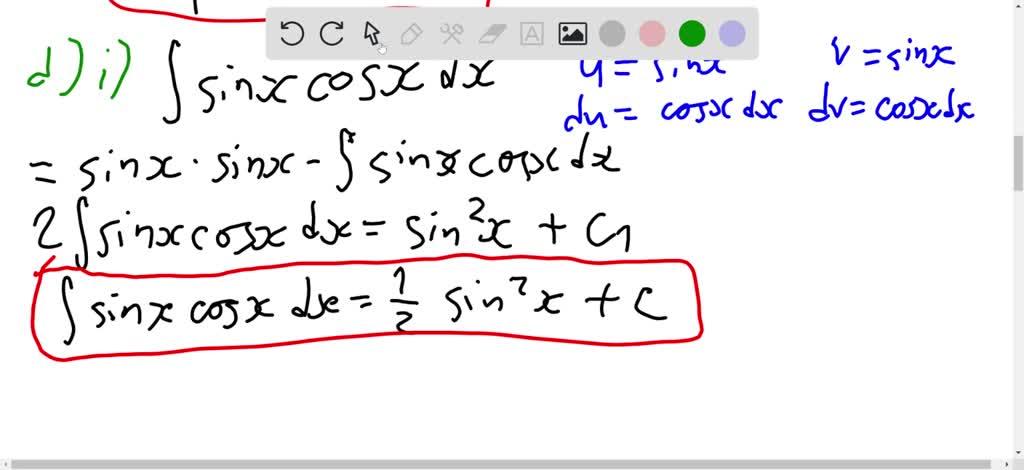 d) i) ∫ sinx cosx dx
u = sinx v = sinx
du = cosx dx dv = cosx dx
= sinx · sinx - ∫ sinx cosx dx
2 ∫ sinx cosx dx = sin²x + C₁
∫ sinx cosx dx = 1/2 sin²x + C